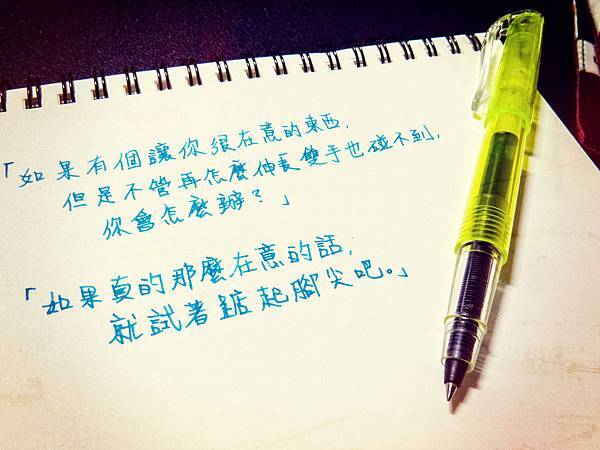 「如果有個讓你很在意的東西,
但是不管再怎麼伸長雙手也碰不到,
你會怎麼辦?」
「如果真的那麼在意的話,
就試著踮起腳尖吧。」